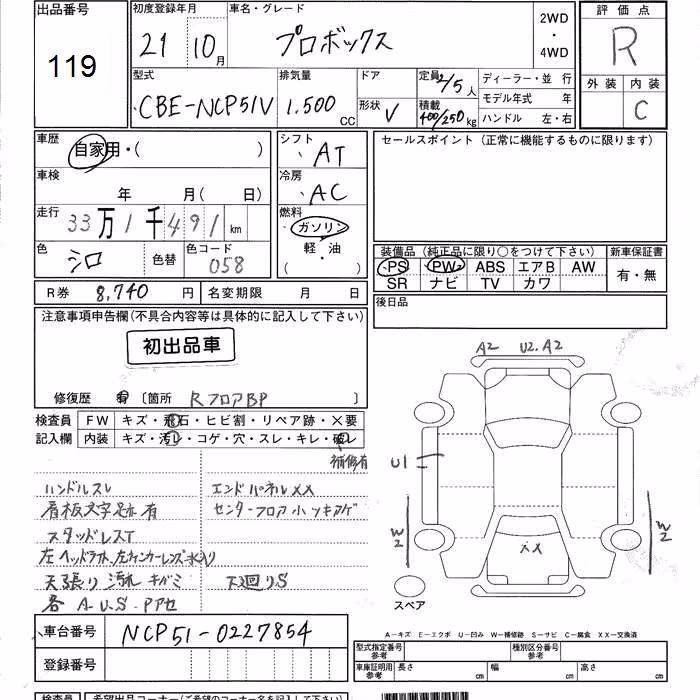 出品番号 119
初度登録年月 21 10月
車名・グレード プロボックス
2WD ・ 4WD
評価点 R
外装 内装 C
型式 CBE-NCP51V
排気量 1.500 CC
ドア
形状 V
定員 2/5 人
積載 400/250 kg
ディーラー・並 行
モデル年式 年
ハンドル 左・右
車歴 自家用・( )
シフト AT
セールスポイント (正常に機能するものに限ります)
車検 年 月( 日)
冷房 AC
走行 33万1千491 km
燃料 ガソリン
軽・油
( )
色 シロ 色替 色コード 058
装備品 (純正品に限り○をつけて下さい) 新車保証書
PS PW ABS エアB AW 有・無
SR ナビ TV カワ
R券 8,740 円 名変期限 月 日
後日品
注意事項申告欄(不具合内容等は具体的に記入して下さい)
初出品車
修復歴 有 〔箇所 RフロアBP
A2 U2.A2
検査員 FW キズ・飛石・ヒビ割・リペア跡・×要
記入欄 内装 キズ・汚レ・コゲ・穴・スレ・キレ・破レ
補修有
U1
ハンドルスレ エンドパネルXX
看板文字跡有 センターフロア小ツキアゲ
スタッドレスT
W2 W2
XX
左ヘッドライト、左ウィンカーレンズ水入り
天張り汚れキバミ 下廻りS
各A.U.S.Pアセ
スペア
A−キズ E−エクボ U−凹み W−補修跡 S−サビ C−腐食 XX−交換済
車台番号 NCP51-0227854
登録番号
型式指定番号 参考 種別区分番号 参考
車庫証明用 参考 長さ cm 幅 cm 高さ cm
検査員 希望出品コーナー(ご希望のコーナー名を記入して下さい)